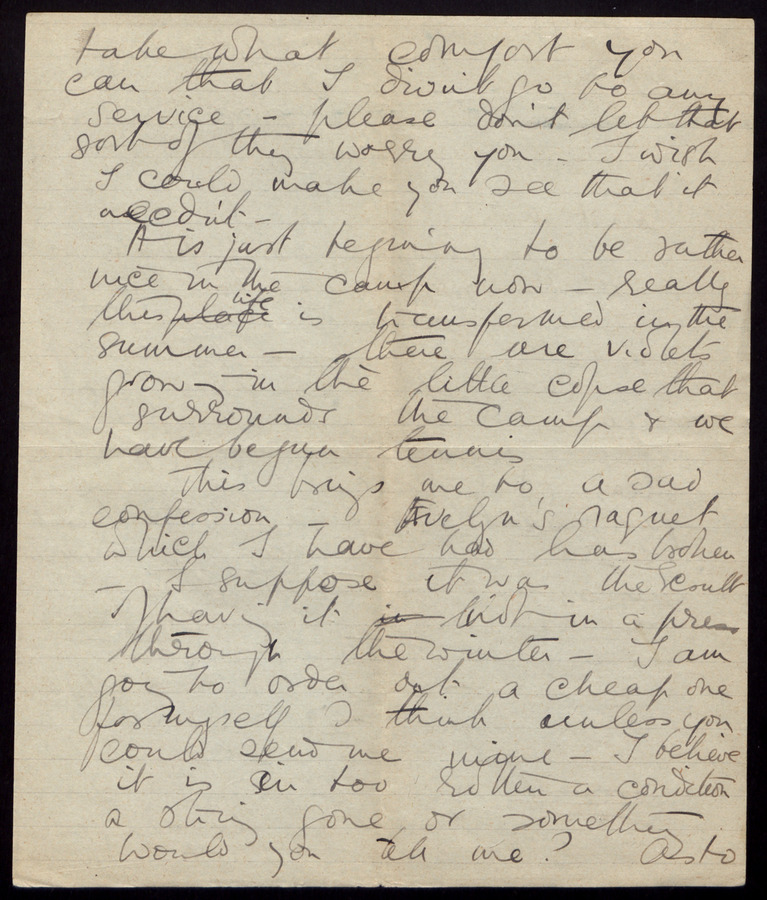 take what comfort you
can that I didn't go to any
service - please don't let that
sort of thing worry you - I wish
I could make you see that it
needn't -
It is just beginning to be rather
nice in the camp now - really
this place life is transformed in the
summer - there are violets
growing in the little copse that
surrounds the camp & we
have begun tennis
This brings me to a sad
confession - Evelyn's raquet
which I have had has broken
- I suppose it was the result
of having it in not in a press
through the winter - I am
going to order out a cheap one
for myself I think unless you
could send me mine - I believe
it is in too rotten a condition
a string gone or something
would you tell me? As to